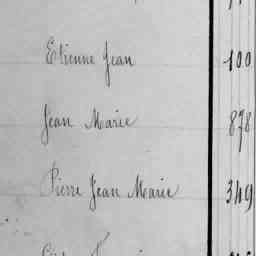 Etienne Jean 100
Jean Marie 878
Pierre Jean Marie 349